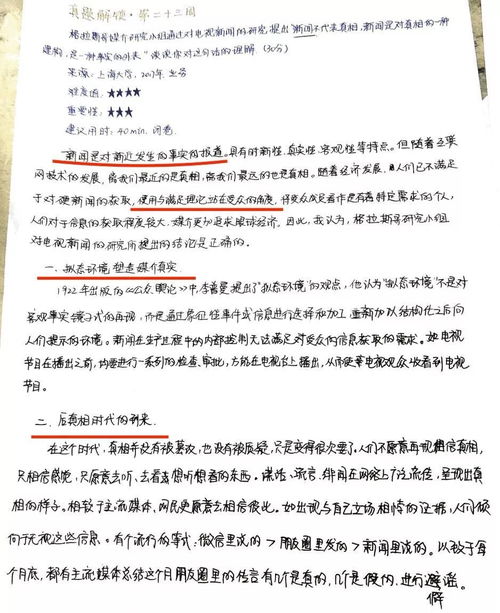 真题解锁·第二十三周
格拉斯哥媒介研究小组通过对电视新闻的研究,提出"新闻不代表真相,新闻是对真相的一种
建构,是一种事实的外表"谈谈你对这句话的理解.(30分)
来源:上海大学,2017年,业务
难度值:★★★★
重要性:★★★
建议用时:40min,闭卷
新闻是对新近发生的事实的报道。具有时新性、真实性、客观性等特点。但随着互联
网技术的发展,离我们最近的是真相,离我们最远的也是真相。随着经济发展,人们已不满足
于对硬新闻的获取,使用与满足理论站在受众的角度,将受众成员看作是有着特定需求的个人,
人们对于信息的获取程度较大,媒介更加追求眼球经济。因此,我认为,格拉斯哥研究小组
对电视新闻的研究所提出的结论是正确的。
一、拟态环境塑造媒介真实
1922年出版的《公众舆论》中,李普曼提出了"拟态环境"的观点,他认为"拟态环境"不是对
客观事实镜子式的再现,而是通过象征性事件或信息进行选择和加工,重新加以结构化之后向
人们提示的环境。新闻在生产过程中的内部控制无法满足对受众内信息获取的需求。如电视
节目在播出之前,均要进行一系列的检查、审批,方能在电视台上播出,从而使电视观众收看到电视
节目。
二、后真相时代的到来
在这个时代,真相并没有被篡改,也没有被质疑,只是变得很次要了。人们不愿意再现相信真相,
只相信感觉,只愿意去听、去看去想听想看的东西。谎话、流言、绯闻在网络上广泛流传,呈现出真
相的样子。相较于主流媒体,网民更愿意去相信彼此。如出现与自己立场相悖的证据,人们倾
向于无视这些信息。有个流行的等式:微信里说的>朋友圈里发的>新闻里说的。以致于每
个月底,都有主流媒体总结这个月朋友圈里的传言有几个是真的,几个是假的,进行辟谣。
解